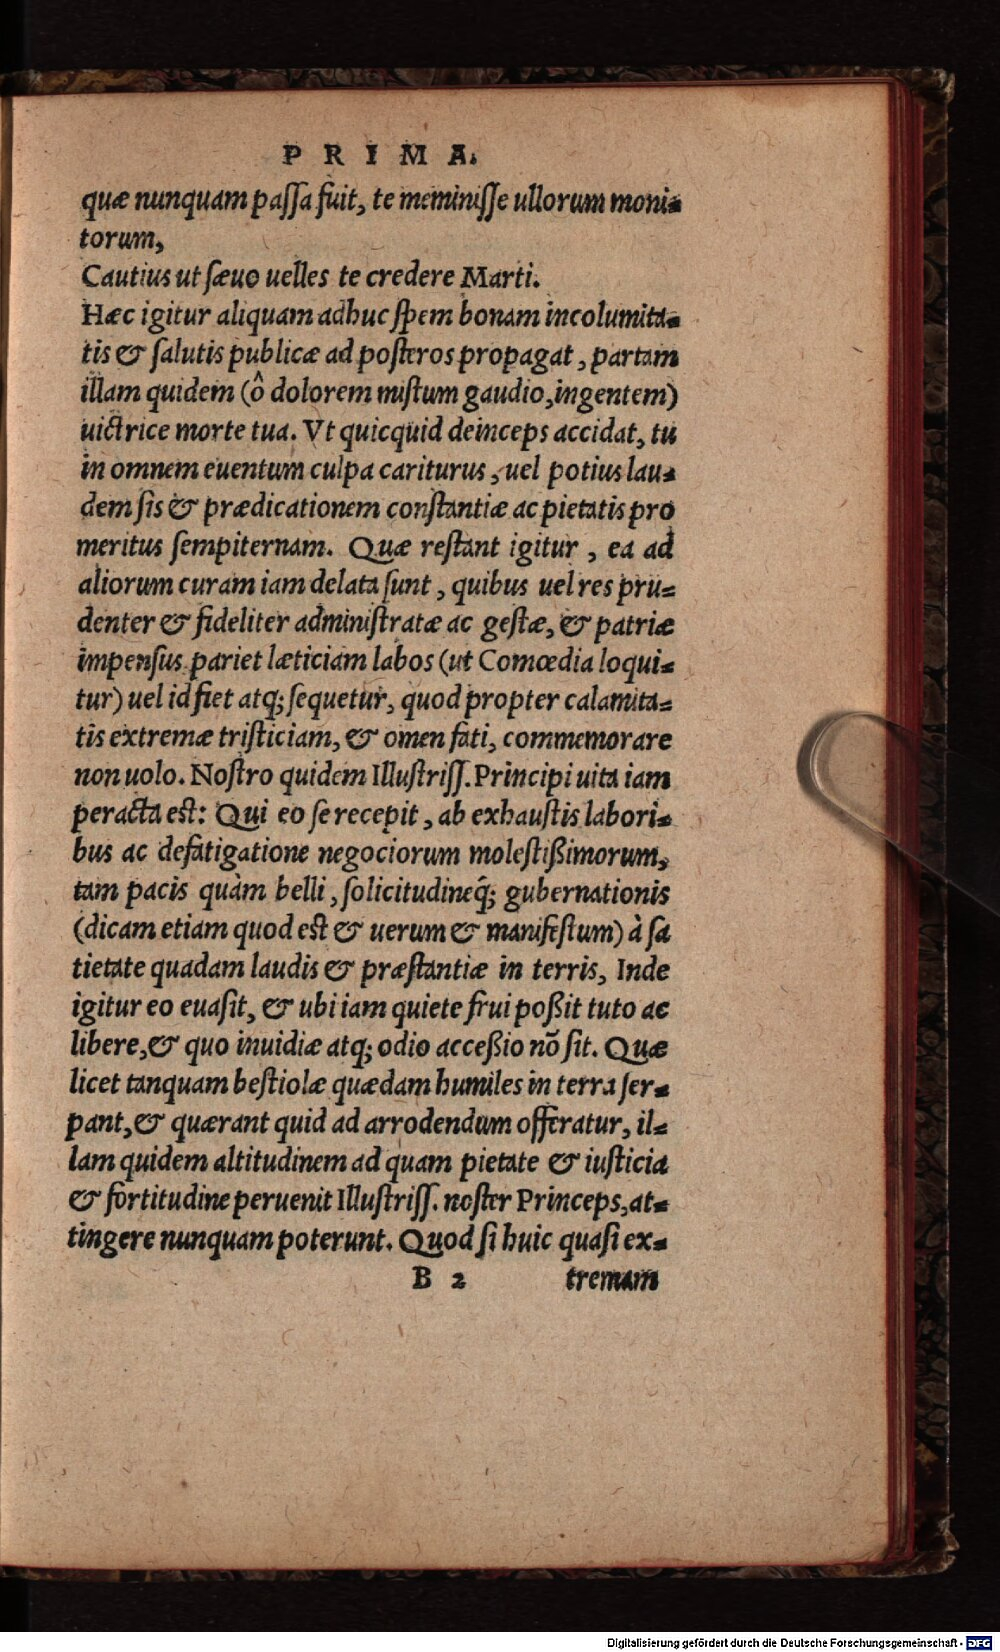 PRIMA.
quæ nunquam paſſa fuit, te meminiſſe ullorum moni-
torum,
Cautius ut ſæuo uelles te credere Marti.
Hæc igitur aliquam adhuc ſpem bonam incolumita-
tis & ſalutis publicæ ad poſteros propagat, partam
illam quidem (ô dolorem miſtum gaudio, ingentem)
uictrice morte tua. Vt quicquid deinceps accidat, tu
in omnem euentum culpa cariturus, uel potius lau-
dem ſis & prædicationem conſtantiæ ac pietatis pro
meritus ſempiternam. Quæ reſtant igitur, ea ad
aliorum curam iam delata ſunt, quibus uel res pru-
denter & fideliter adminiſtratæ ac geſtæ, & patriæ
impenſus pariet læticiam labos (ut Comœdia loqui-
tur) uel id fiet atq; ſequetur, quod propter calamita-
tis extremæ triſticiam, & omen fati, commemorare
non uolo. Noſtro quidem Illuſtriſſ. Principi uita iam
peracta est: Qui eo ſe recepit, ab exhauſtis labori-
bus ac defatigatione negociorum moleſtißimorum,
tam pacis quàm belli, ſolicitudineq́; gubernationis
(dicam etiam quod est & uerum & manifeſtum) à ſa
tietate quadam laudis & præſtantiæ in terris, Inde
igitur eo euaſit, & ubi iam quiete frui poßit tuto ac
libere, & quo inuidiæ atq; odio acceßio nõ ſit. Quæ
licet tanquam beſtiolæ quædam humiles in terra ſer-
pant, & quærant quid ad arrodendum offeratur, il-
lam quidem altitudinem ad quam pietate & iuſticia
& fortitudine peruenit Illuſtriſſ. noſter Princeps, at-
tingere nunquam poterunt. Quod ſi huic quaſi ex-
B 2 tremam
Digitalisierung gefördert durch die Deutsche Forschungsgemeinschaft - DFG